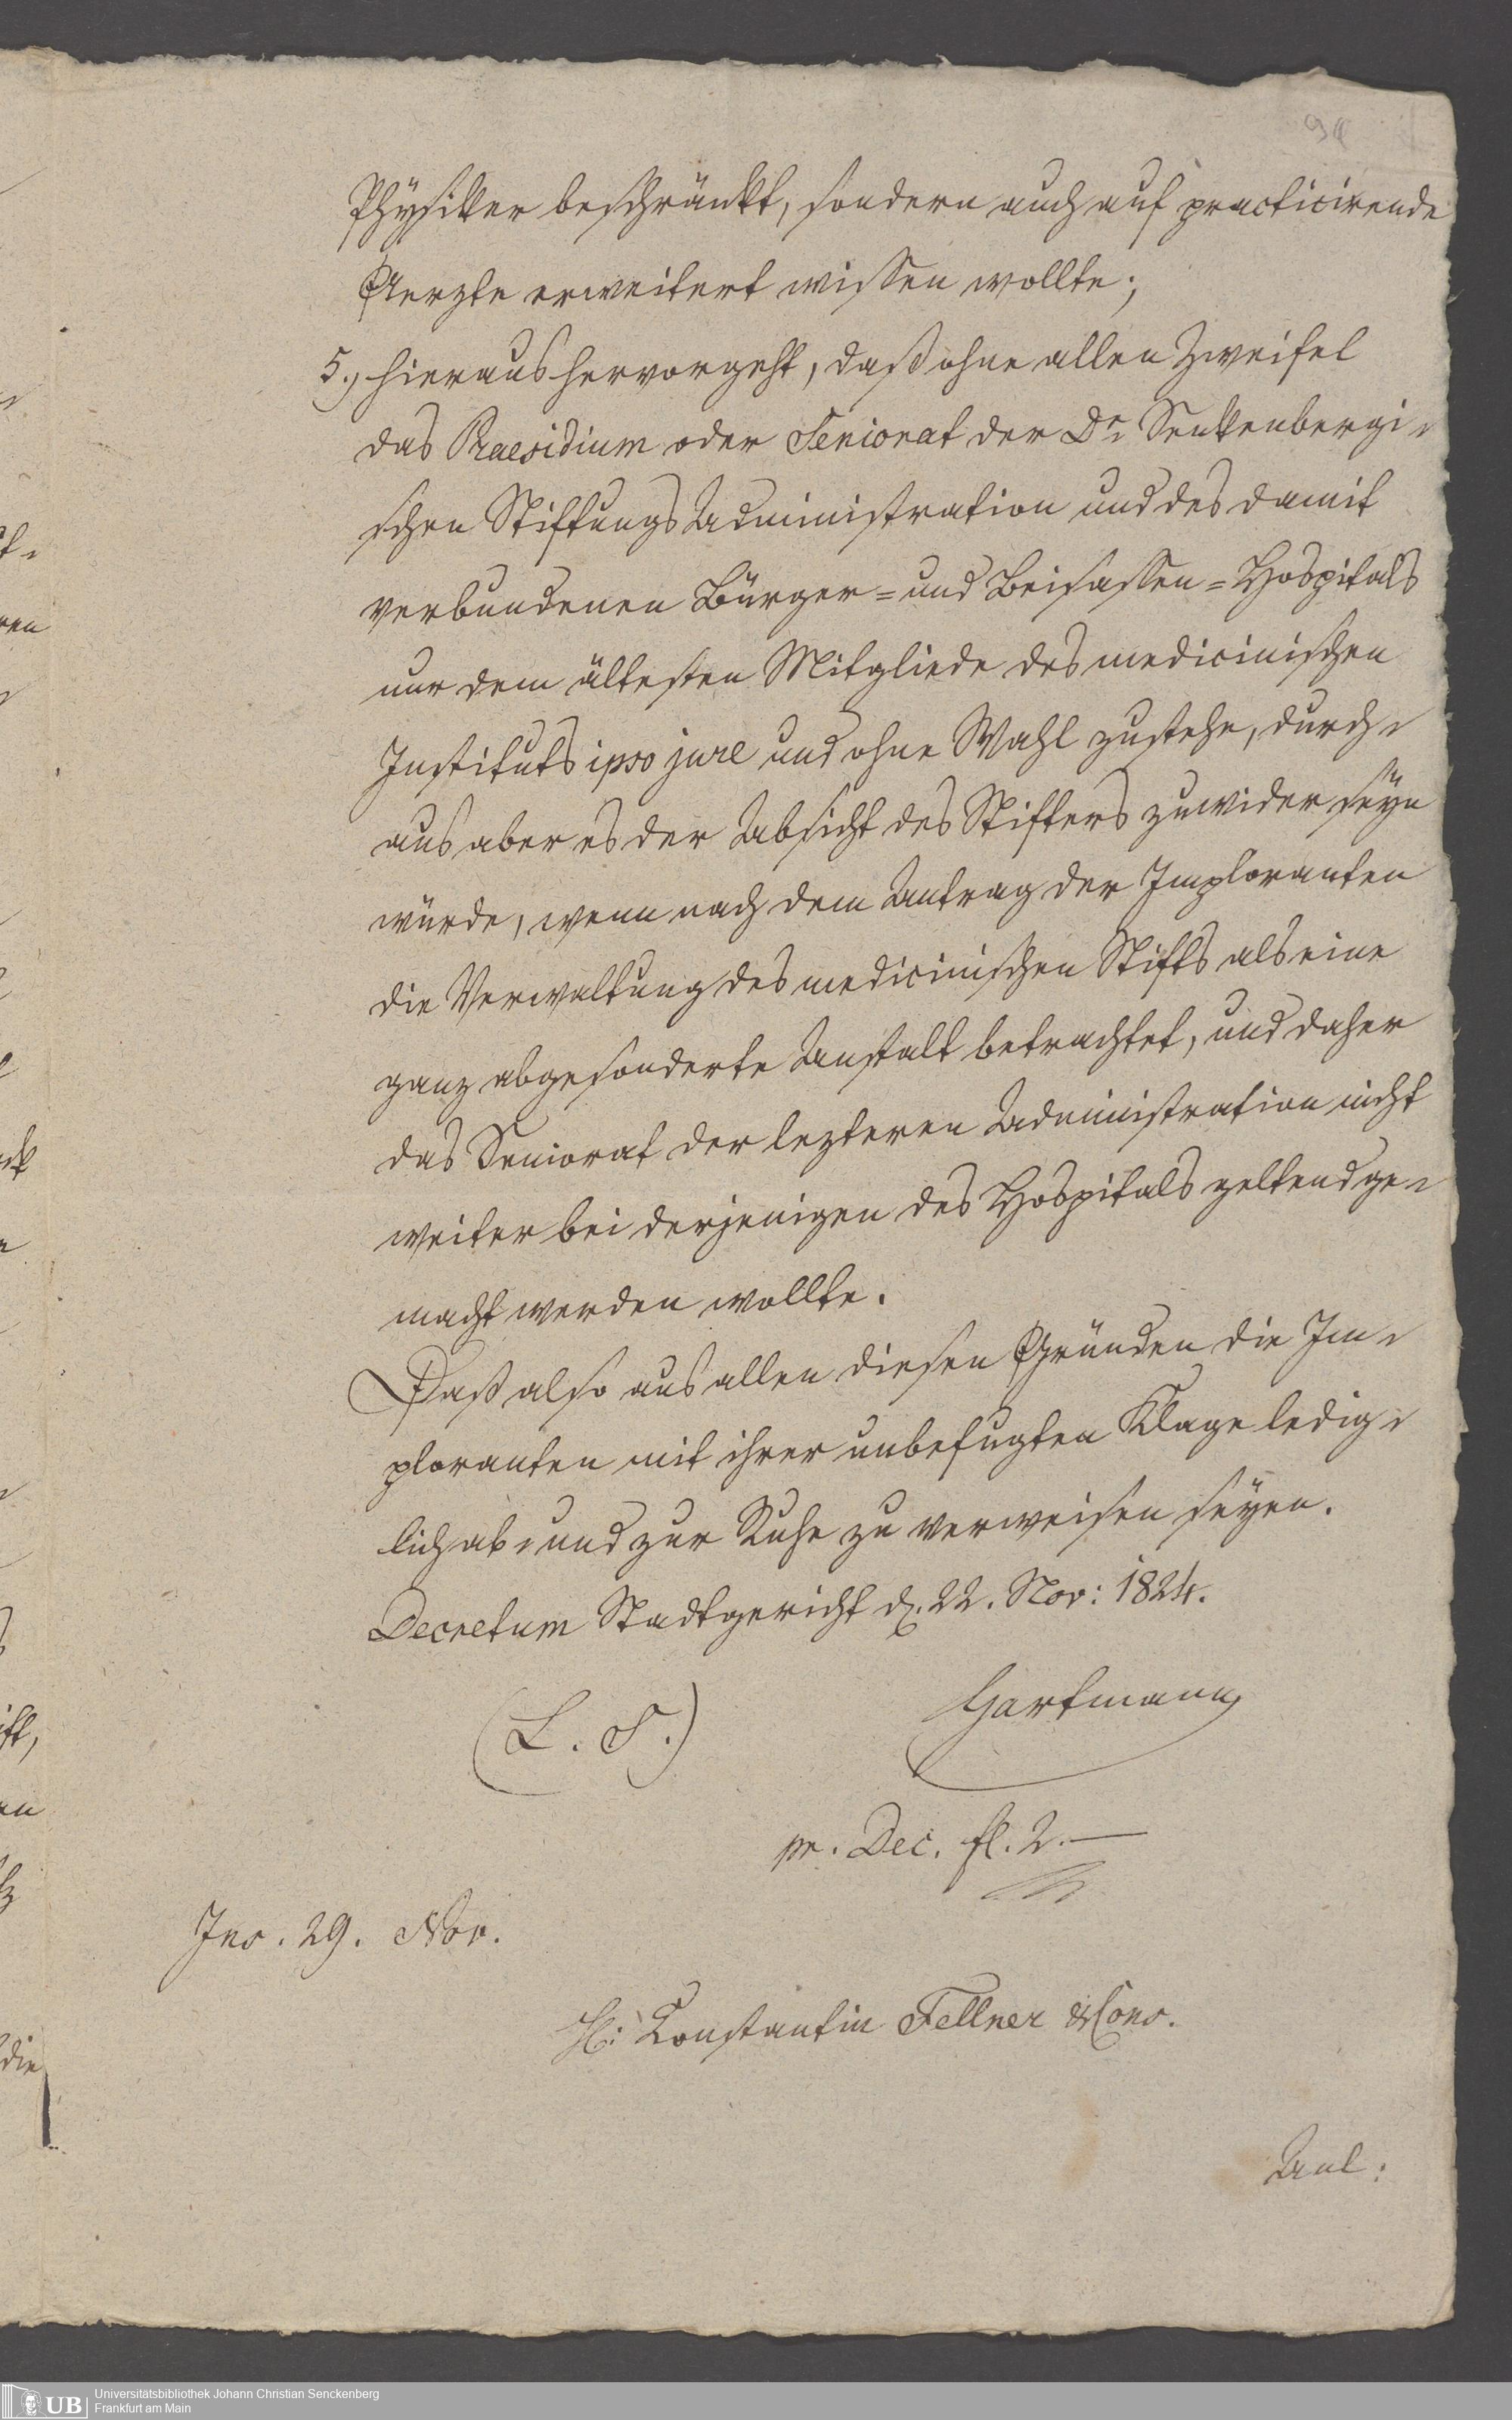 94
Physiker beschränkt, sondern auch auf practicirende
Aerzte erweitert wissen wollte;
5.) hieraus hervorgeht, daß ohne allen Zweifel
das Praesidium oder Seniorat der Dr. Senkenbergi-
schen Stiftungs Administration und des damit
verbundenen Bürger- und Beisassen-Hospitals
nur dem ältesten Mitgliede des medicinischen
Instituts ipso jure und ohne Wahl zustehe, durch-
aus aber es der Absicht des Stifters zuwider seÿn
würde, wenn nach dem Antrag der Imploranten
die Verwaltung des medicinischen Stifts als eine
ganz abgesonderte Anstalt betrachtet, und daher
das Seniorat der lezteren Administration nicht
weiter bei derjenigen des Hospitals geltend ge-
macht werden wollte.
Daß also aus allen diesen Gründen die Im-
ploranten mit ihrer unbefugten Klage ledig-
lich ab- und zur Ruhe zu verweisen seyen.
Decretum Stadtgericht d. 22. Nov: 1824.
(L. S.) Hartmann
pr. Dec. fl. 2.—
Ins. 29. Nov.
H: Constantin Fellner & Cons.
Anl:
die
UB Universitätsbibliothek Johann Christian Senckenberg
Frankfurt am Main